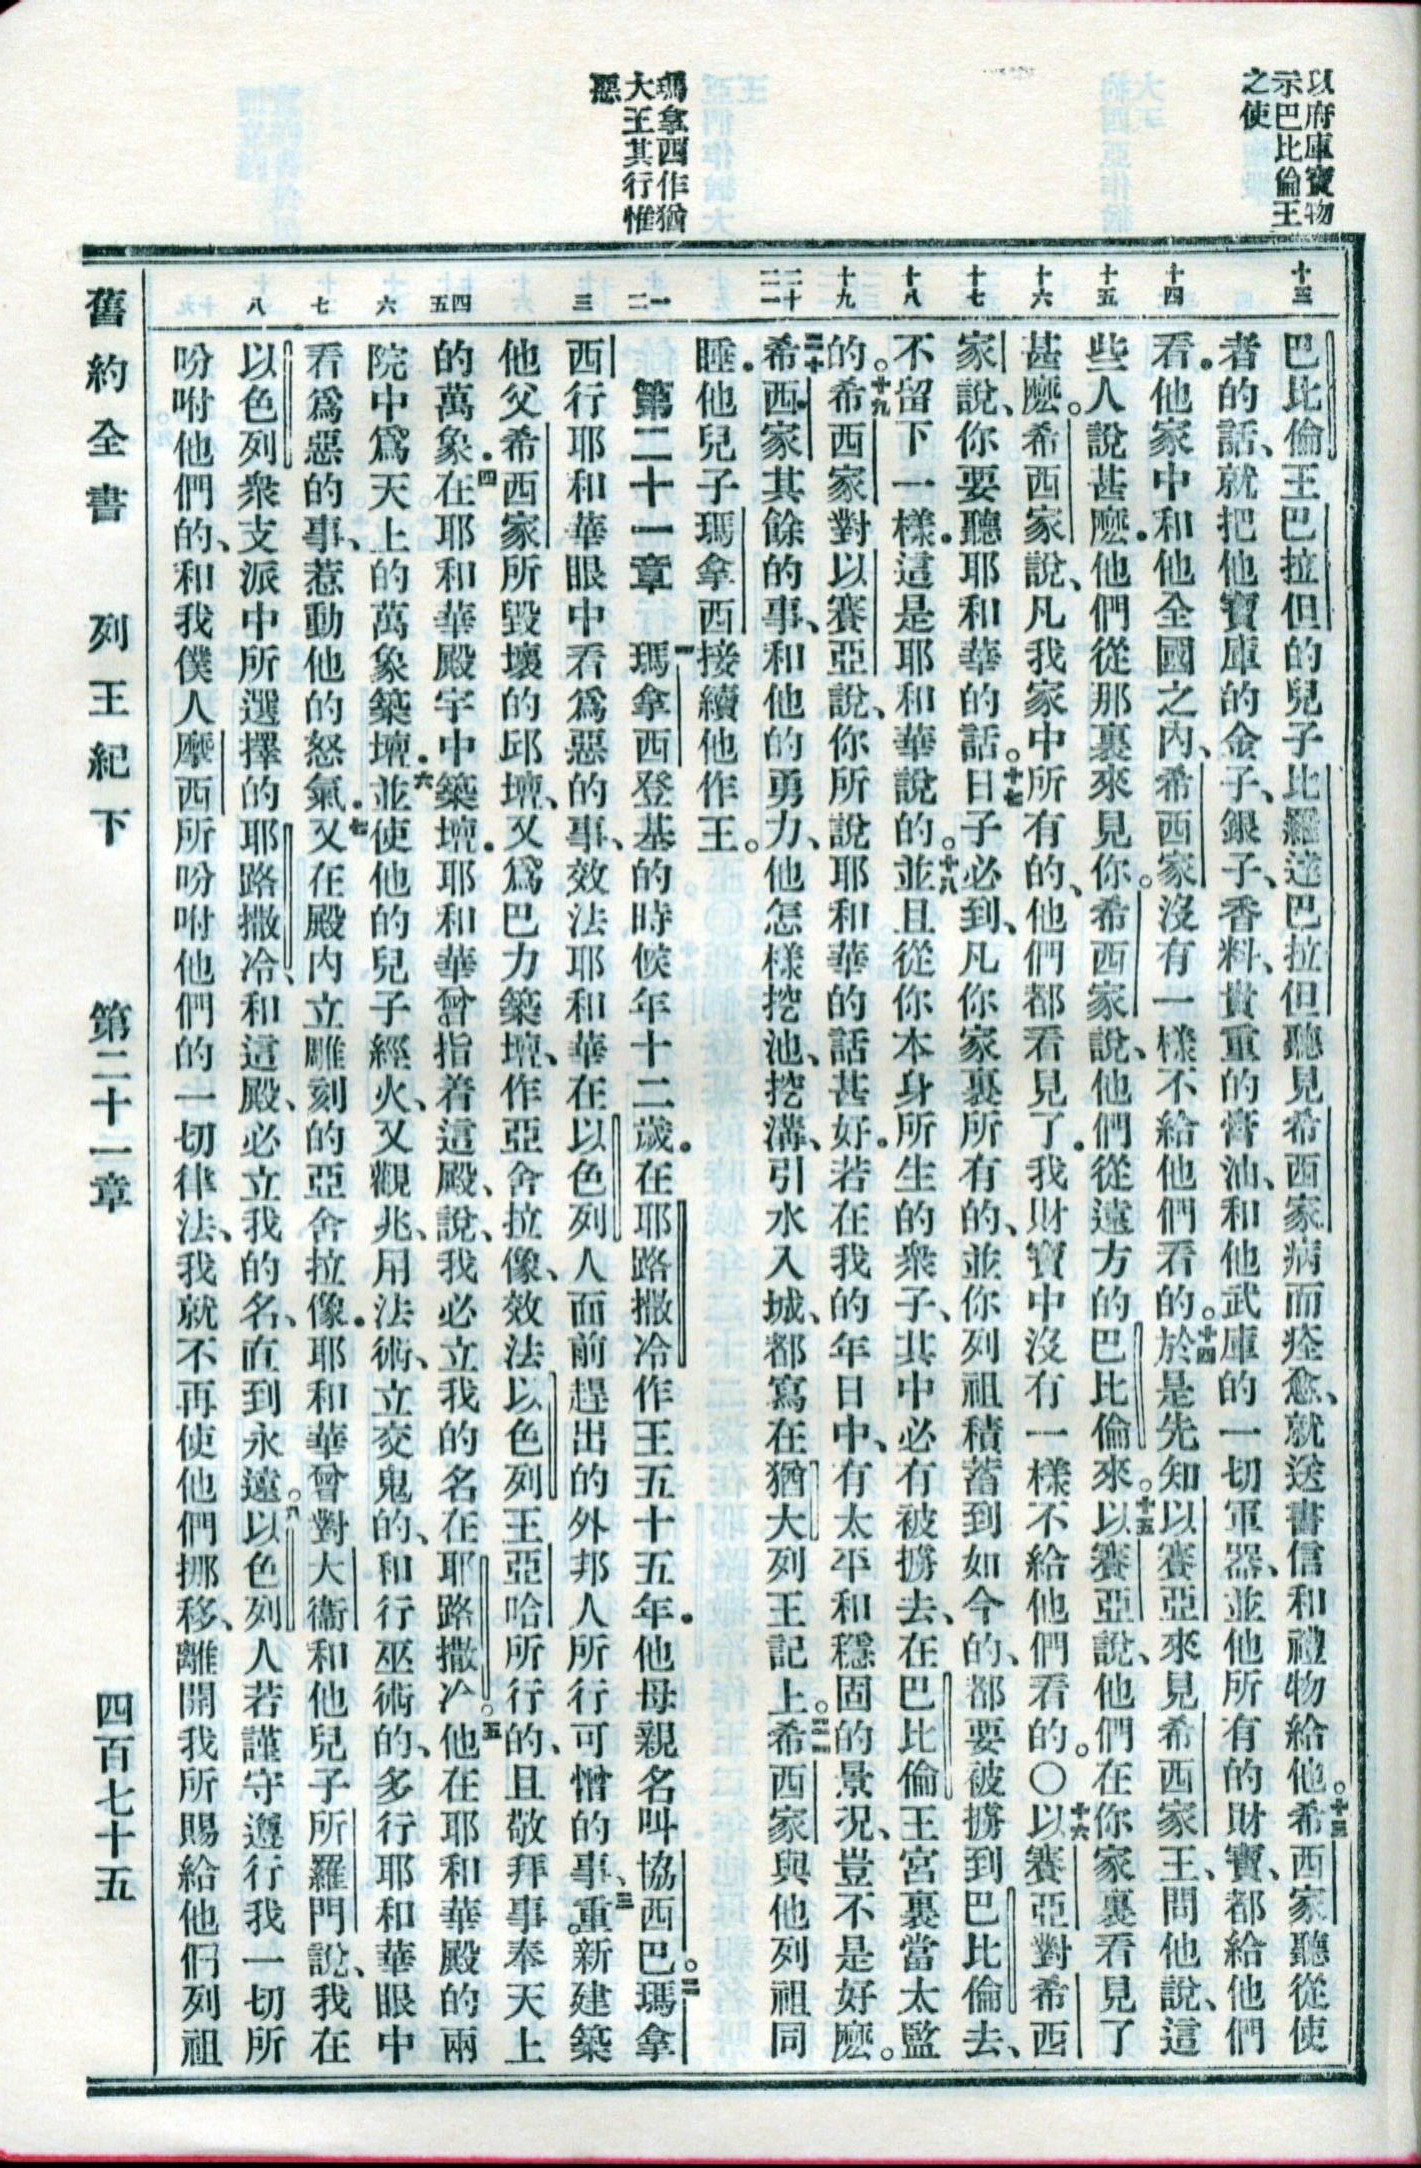 以府庫寶物
示巴比倫王
之使
瑪拿西作猶
大王其行惟
惡
十三
十四
十五
十六
十七
十八
十九
二十
二一
一
二
三
四
五
六
七
八
巴比倫王巴拉但的兒子比羅達巴拉但聽見希西家病而痊愈、就送書信和禮物給他。十三希西家聽從使
者的話、就把他寶庫的金子、銀子、香料、貴重的膏油、和他武庫的一切軍器、並他所有的財寶、都給他們
看．他家中和他全國之內、希西家沒有一樣不給他們看的。十四於是先知以賽亞來見希西家王、問他說、這
些人說甚麽．他們從那裏來見你。希西家說、他們從遠方的巴比倫來。十五以賽亞說、他們在你家裏看見了
甚麽。希西家說、凡我家中所有的、他們都看見了．我財寶中沒有一樣不給他們看的。〇十六以賽亞對希西
家說、你要聽耶和華的話。十七日子必到、凡你家裏所有的、並你列祖積蓄到如今的、都要被擄到巴比倫去、
不留下一樣．這是耶和華說的。十八並且從你本身所生的衆子、其中必有被擄去、在巴比倫王宮裏當太監
的。十九希西家對以賽亞說、你所說耶和華的話甚好．若在我的年日中、有太平和穩固的景況、豈不是好麽。
二十希西家其餘的事、和他的勇力、他怎樣挖池、挖溝、引水入城、都寫在猶大列王記上。二一希西家與他列祖同
睡．他兒子瑪拿西接續他作王。
第二十一章 一瑪拿西登基的時候年十二歲．在耶路撒冷作王五十五年．他母親名叫協西巴。二瑪拿
西行耶和華眼中看爲惡的事、效法耶和華在以色列人面前趕出的外邦人所行可憎的事、三重新建築
他父希西家所毀壞的邱壇、又爲巴力築壇、作亞舍拉像、效法以色列王亞哈所行的、且敬拜事奉天上
的萬象．四在耶和華殿宇中築壇．耶和華曾指着這殿、說、我必立我的名在耶路撒冷。五他在耶和華殿的兩
院中爲天上的萬象築壇．六並使他的兒子經火、又觀兆、用法術、立交鬼的、和行巫術的、多行耶和華眼中
看爲惡的事、惹動他的怒氣．七又在殿內立雕刻的亞舍拉像．耶和華曾對大衞和他兒子所羅門說、我在
以色列衆支派中所選擇的耶路撒冷、和這殿、必立我的名、直到永遠。八以色列人若謹守遵行我一切所
吩咐他們的、和我僕人摩西所吩咐他們的一切律法、我就不再使他們挪移、離開我所賜給他們列祖
舊約全書 列王紀下 第二十一章 四百七十五